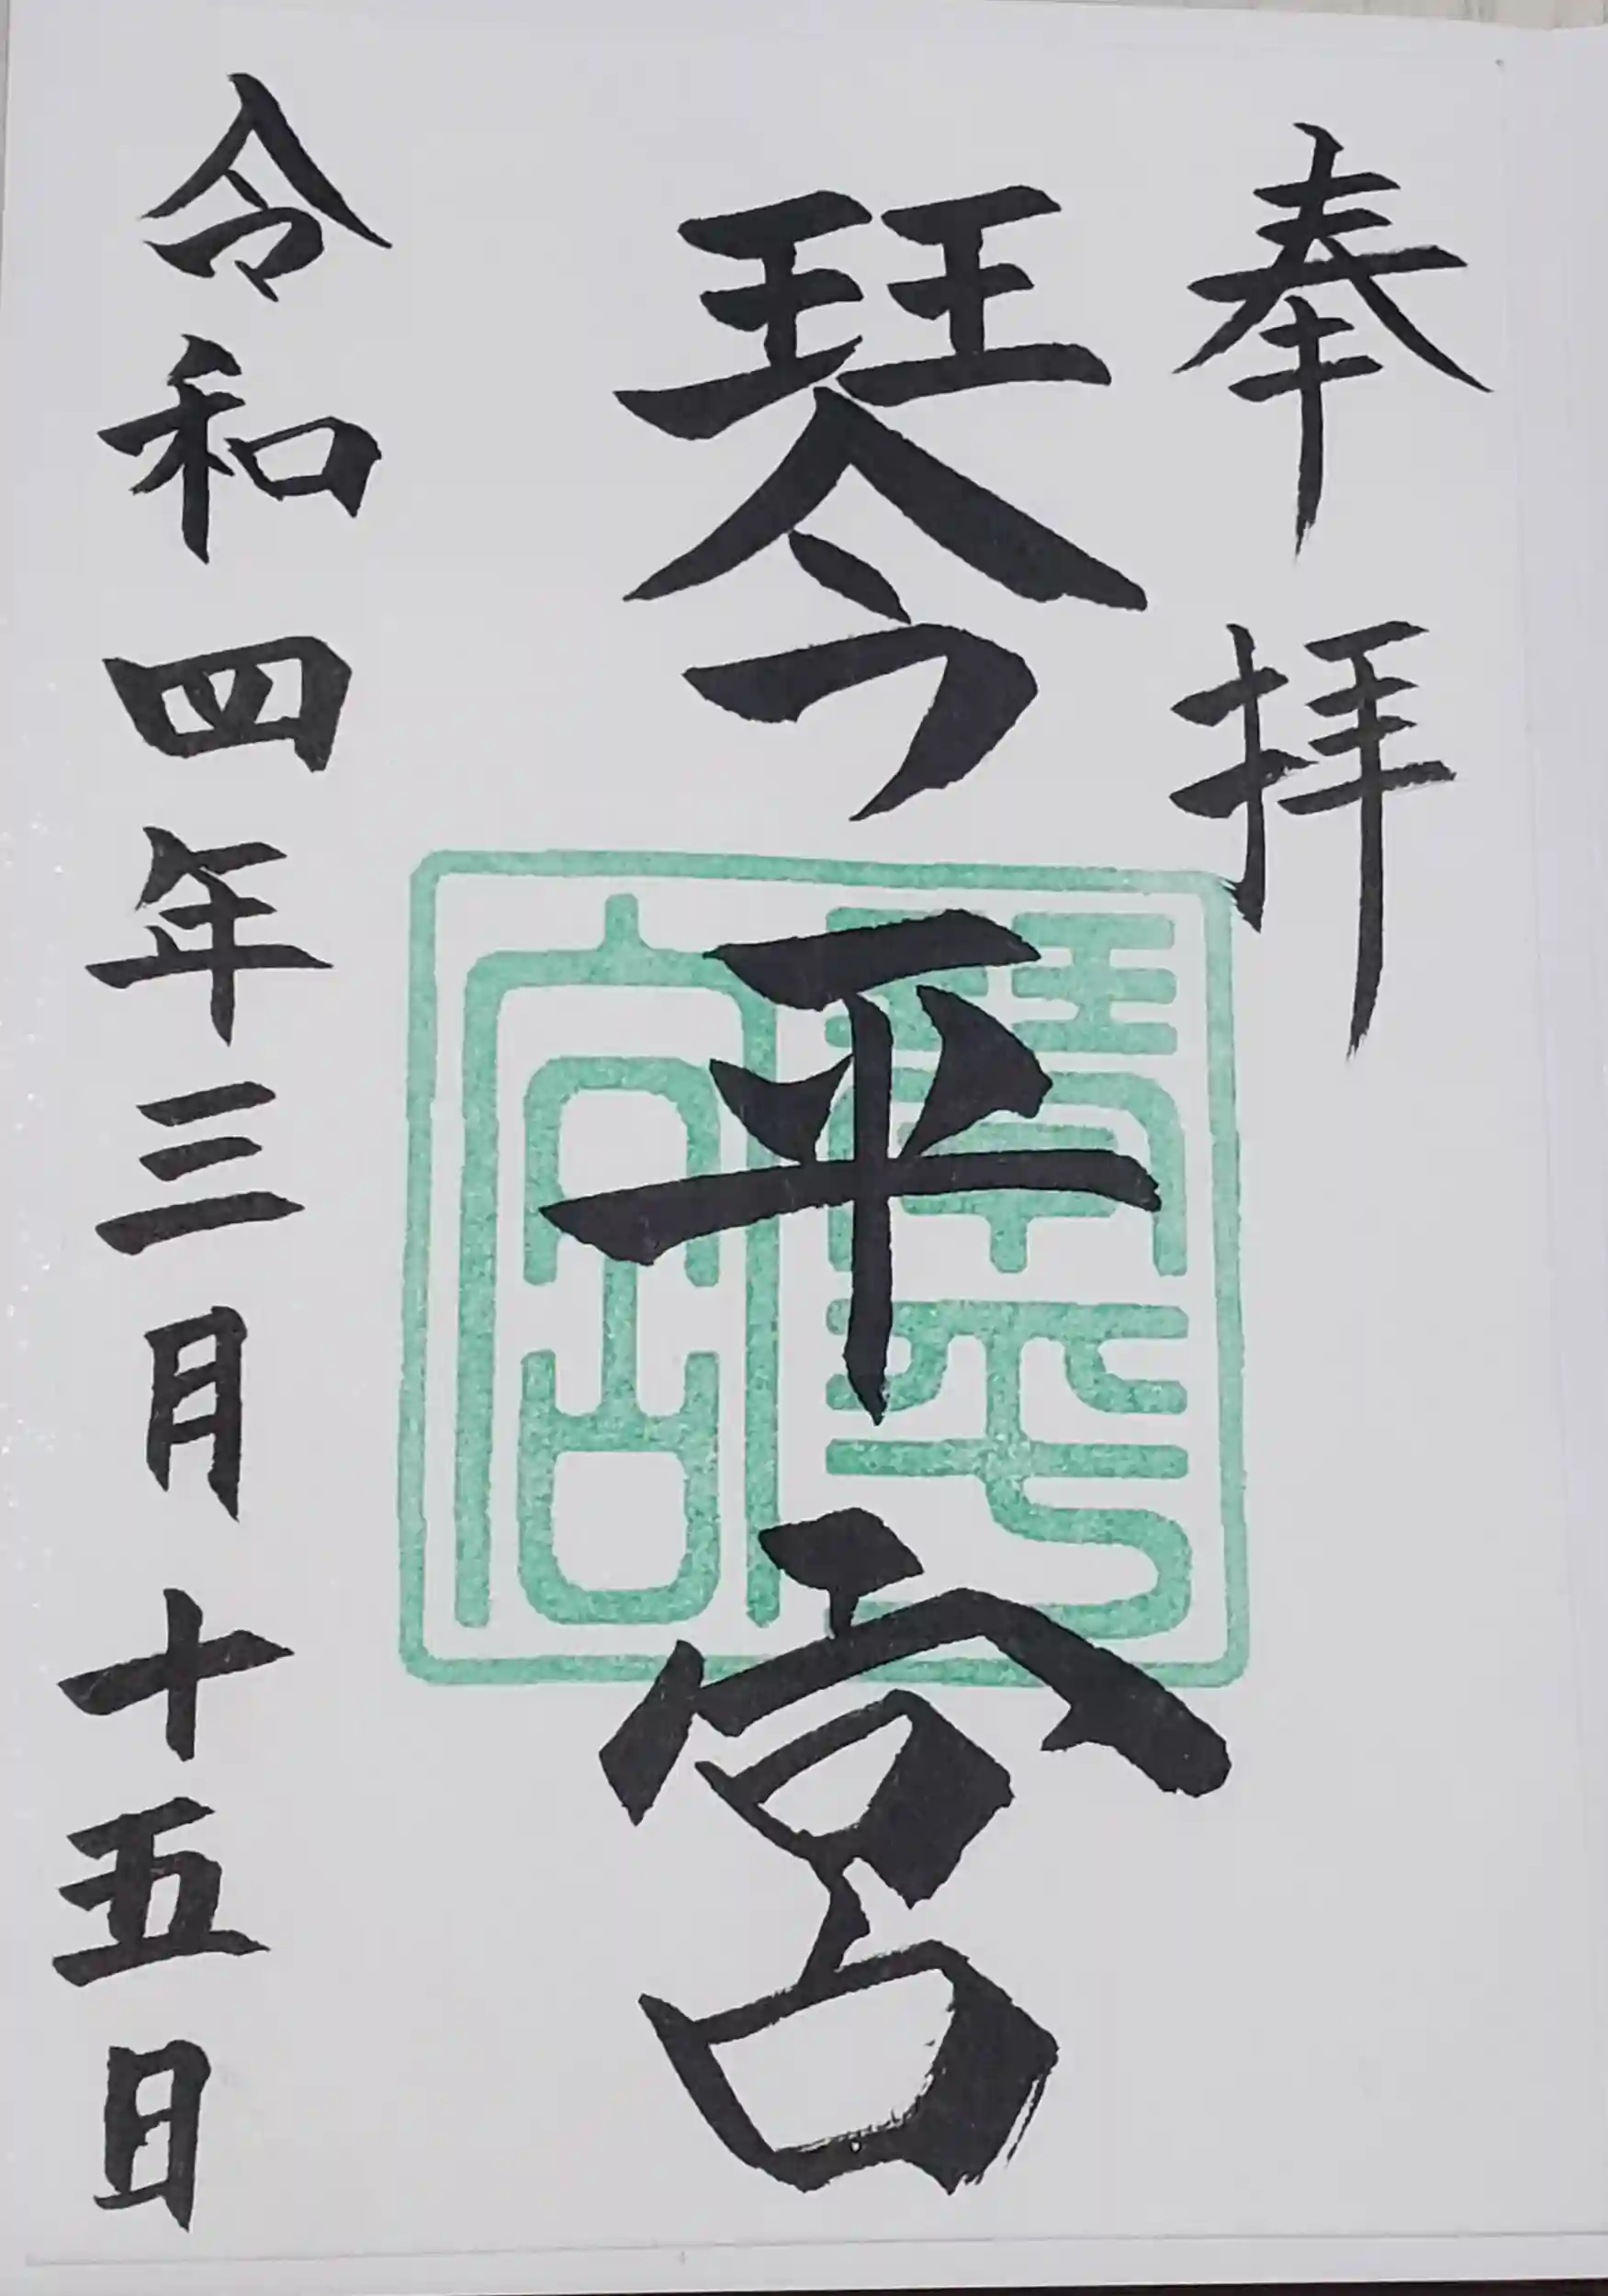 奉拝
琴平宮
琴平宮
令和四年三月十五日